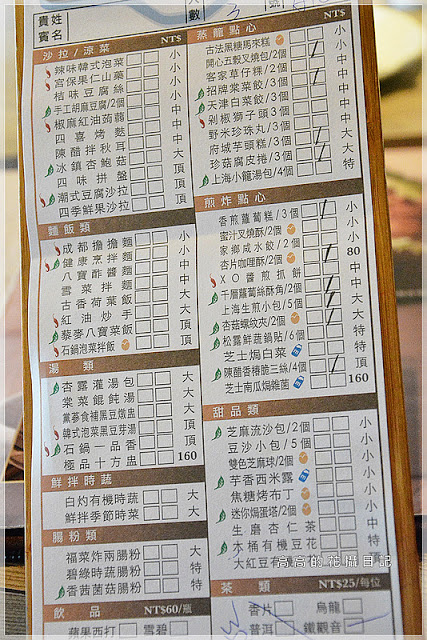 貴姓
賓名
人
數
沙拉/涼菜 NT$
辣味韓式泡菜 小
宮保果仁山藥 小
桔味豆腐絲 小
手工胡麻豆腐/2個 小
椒麻紅油蒟蒻 中
四喜烤麩 中
陳醋拌秋耳 中
冰鎮杏鮑菇 大
四味拼盤 大
潮式豆腐沙拉 頂
四季鮮果沙拉 大
麵飯類
成都擔擔麵 小
健康烹拌麵 小
八寶酢醬麵 中
雪菜拌麵 中
古香荷葉飯 大
紅油炒手 大
藜麥八寶菜飯 頂
石鍋泡菜拌飯 頂
湯類
杏露灌湯包 大
棠菜餛飩湯 大
黨蔘食補黑豆燉盅 大
韓式泡菜黑豆芽湯 頂
石鍋一品香 頂
極品十方盅 160
鮮拌時蔬
白灼有機時蔬
鮮拌季節時菜
腸粉類
福菜炸兩腸粉 大
碧綠時蔬腸粉 特
香茜菌菇腸粉 特
飲品 NT$60/瓶
蘋果西打 雪碧
蒸籠點心 NT$
古法黑糖馬來糕 小
開心五穀叉燒包/2個 小
客家草仔粿/2個 小
招牌棠菜餃/3個 中
天津白菜餃/3個 中
剁椒獅子頭3個 中
野米珍珠丸/3個 中
府城芋頭糕/3個 大
珍菇腐皮捲/3個 大
上海小籠湯包/4個 特
煎炸點心
香煎蘿蔔糕/3個 小
蜜汁叉燒酥/2個 小
家鄉咸水餃/2個 80
杏片咖哩酥/2個 中
XO醬煎抓餅 中
千層蘿蔔絲酥角/2個 大
上海生煎小包/5個 大
杏菇螺紋夾/2個 大
松露鮮蔬鍋貼/6個 特
芝士焗白菜 特
陳醋香椿脆三絲/4個 頂
芝士南瓜焗雜菌 160
甜品類
芝麻流沙包/2個 小
豆沙小包/5個 小
雙色芝麻球/2個 小
芋香西米露 小
焦糖烤布丁 小
迷你焗蛋塔/2個 小
生磨杏仁茶 中
本桶有機豆花 大
大紅豆
茶類 NT$25/每位
香片 烏龍
普洱 鐵觀音
高高的花攝日記